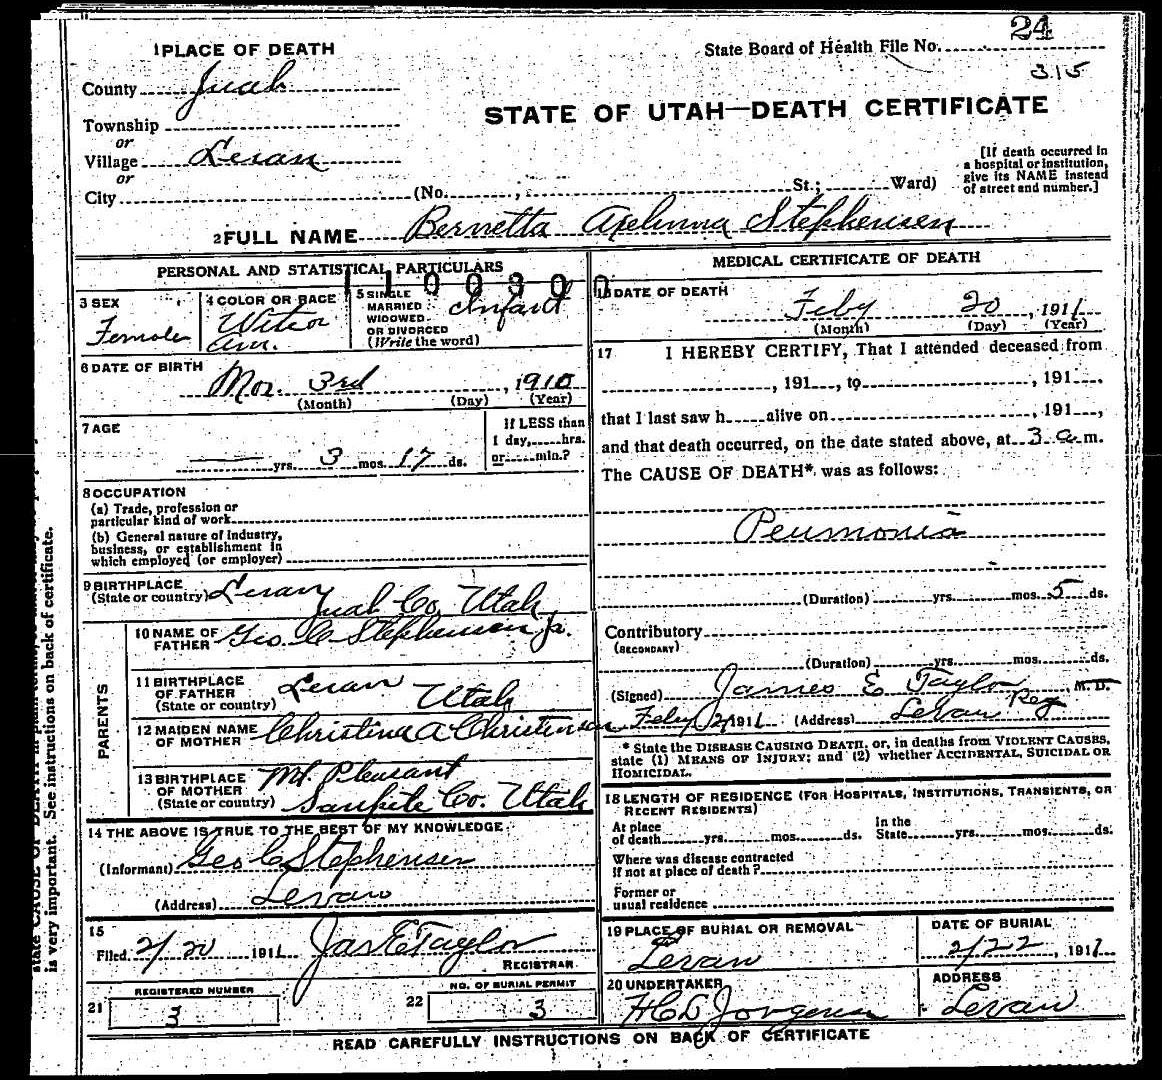 1 PLACE OF DEATH
State Board of Health File No. 24
315
County Juab
STATE OF UTAH—DEATH CERTIFICATE
Township
or
Village Levan
or
City (No. , St.; Ward)
[If death occurred in
a hospital or institution,
give its NAME instead
of street and number.]
2 FULL NAME Bernetta Stephensen
PERSONAL AND STATISTICAL PARTICULARS
1100300
3 SEX
Female
4 COLOR OR RACE
Am.
5 SINGLE
MARRIED
WIDOWED
OR DIVORCED
(Write the word)
Infant
6 DATE OF BIRTH
3rd , 1910
(Month) (Day) (Year)
7 AGE
yrs. 3 mos. 17 ds.
If LESS than
1 day, hrs.
or min.?
8 OCCUPATION
(a) Trade, profession or
particular kind of work
(b) General nature of Industry,
business, or establishment in
which employed (or employer)
9 BIRTHPLACE
(State or country) Levan
Juab Co. Utah
PARENTS
10 NAME OF
FATHER
Geo. C Stephensen Jr.
11 BIRTHPLACE
OF FATHER
(State or country)
Levan Utah
12 MAIDEN NAME
OF MOTHER
Christina A Christensen
13 BIRTHPLACE
OF MOTHER
(State or country)
Mt. Pleasant
Sanpete Co. Utah
14 THE ABOVE IS TRUE TO THE BEST OF MY KNOWLEDGE
(Informant) Geo C Stephensen
(Address) Levan
15
Filed 2/20 1911 Jas E Taylor
REGISTRAR
REGISTERED NUMBER
21 3
NO. OF BURIAL PERMIT
22 3
MEDICAL CERTIFICATE OF DEATH
16 DATE OF DEATH
Feby 20 , 1911
(Month) (Day) (Year)
17 I HEREBY CERTIFY, That I attended deceased from
, 191 , to , 191 .
that I last saw h alive on , 191 ,
and that death occurred, on the date stated above, at 3 a. m.
The CAUSE OF DEATH* was as follows:
Peumonia
(Duration) yrs. mos. 5 ds.
Contributory
(SECONDARY)
(Duration) yrs. mos. ds.
(Signed) James E Taylor Reg M. D.
Feby 21 1911 (Address) Levan
* State the DISEASE CAUSING DEATH, or, in deaths from VIOLENT CAUSES,
state (1) MEANS OF INJURY; and (2) whether ACCIDENTAL, SUICIDAL OR
HOMICIDAL.
18 LENGTH OF RESIDENCE (FOR HOSPITALS, INSTITUTIONS, TRANSIENTS, OR
RECENT RESIDENTS)
At place
of death yrs. mos. ds.
In the
State yrs. mos. ds.
Where was disease contracted
if not at place of death?
Former or
usual residence
19 PLACE OF BURIAL OR REMOVAL
Levan
DATE OF BURIAL
2/22 , 1911
20 UNDERTAKER
H C D Jorgensen
ADDRESS
Levan
READ CAREFULLY INSTRUCTIONS ON BACK OF CERTIFICATE
is very important. See instructions on back of certificate.